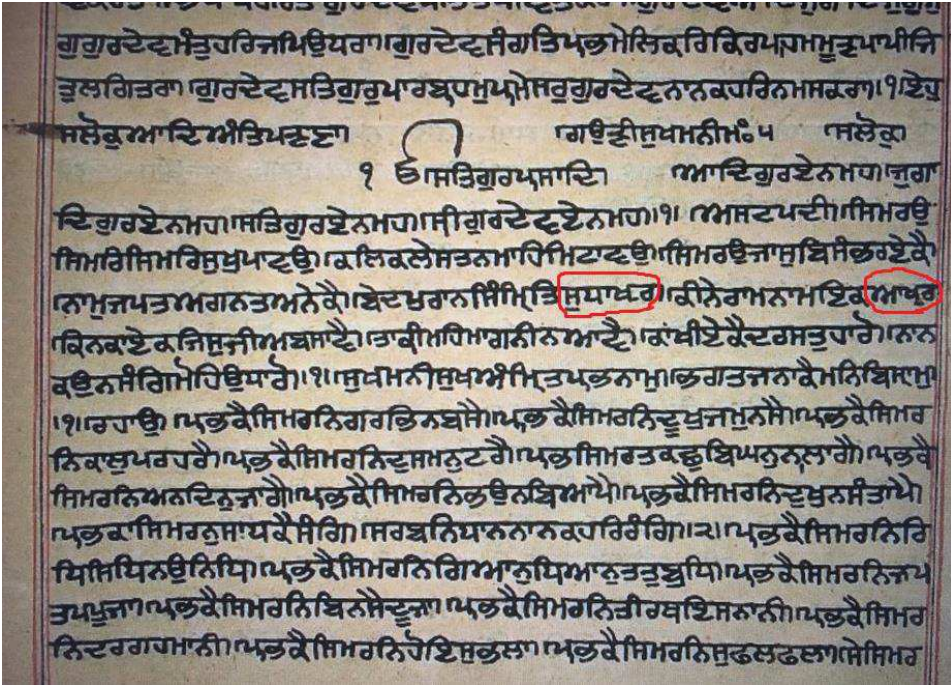 ਗੁਗੁਰਦੇਵਮੰਤੁਹਰਿਜਪਿਉਧਰਾ।ਗੁਰਦੇਵਸੰਗਤਿਪ੍ਰਭਮੇਲਿਕਰਿਕਿਰਪਾਹਮਮੂੜਪਾਪੀਜਿ
ਤੁਲਗਿਤਰਾ।ਗੁਰਦੇਵਸਤਿਗੁਰੁਪਾਰਬ੍ਰਹਮੁਪਰਮੇਸਰੁਗੁਰਦੇਵਨਾਨਕਹਰਿਨਮਸਕਰਾ।੧।ਏਹੁ
ਸਲੋਕੁਆਦਿਅੰਤਿਪੜਣਾ। ।ਗਉੜੀਸੁਖਮਨੀਮਃ੫ ।ਸਲੋਕੁ।
੧ਓ।ਸਤਿਗੁਰਪ੍ਰਸਾਦਿ। ।ਆਦਿਗੁਰਏਨਮਹ।ਜੁਗਾ
ਦਿਗੁਰਏਨਮਹ।ਸਤਿਗੁਰਏਨਮਹ।ਸ੍ਰੀਗੁਰਦੇਵਏਨਮਹ।੧। ।ਅਸਟਪਦੀ।ਸਿਮਰਉ
ਸਿਮਰਿਸਿਮਰਿਸੁਖੁਪਾਵਉ।ਕਲਿਕਲੇਸਤਨਮਾਹਿਮਿਟਾਵਉ।ਸਿਮਰਉਜਾਸੁਬਿਸੰਭਰਏਕੈ
ਨਾਮੁਜਪਤਅਗਨਤਅਨੇਕੈ।ਬੇਦਪੁਰਾਨਸਿੰਮ੍ਰਿਤਿਸੁਧਾਖਰ।ਕੀਨੇਰਾਮਨਾਮਇਕਆਖਰ
ਕਿਨਕਾਏਕਜਿਸੁਜੀਅਬਸਾਵੈ।ਤਾਕੀਮਹਿਮਾਗਨੀਨਆਵੈ।ਕਾਂਖੀਏਕੈਦਰਸਤੁਹਾਰੋ।ਨਾਨ
ਕਉਨਸੰਗਿਮੋਹਿਉਧਾਰੋ।੧।ਸੁਖਮਨੀਸੁਖਅੰਮ੍ਰਿਤਪ੍ਰਭਨਾਮੁ।ਭਗਤਜਨਾਕੈਮਨਿਬਿਸ੍ਰਾਮੁ
।੧।ਰਹਾਉ।ਪ੍ਰਭਕੈਸਿਮਰਨਿਗਰਭਿਨਬਸੈ।ਪ੍ਰਭਕੈਸਿਮਰਨਿਦੂਖੁਜਮੁਨਸੈ।ਪ੍ਰਭਕੈਸਿਮਰ
ਨਿਕਾਲੁਪਰਹਰੈ।ਪ੍ਰਭਕੈਸਿਮਰਨਿਦੁਸਮਨੁਟਰੈ।ਪ੍ਰਭਸਿਮਰਤਕਛੁਬਿਘਨੁਨਲਾਗੈ।ਪ੍ਰਭਕੈ
ਸਿਮਰਨਿਅਨਦਿਨੁਜਾਗੈ।ਪ੍ਰਭਕੈਸਿਮਰਨਿਭਉਨਬਿਆਪੈ।ਪ੍ਰਭਕੈਸਿਮਰਨਿਦੁਖੁਨਸੰਤਾਪੈ।
ਪ੍ਰਭਕਾਸਿਮਰਨੁਸਾਧਕੈਸੰਗਿ।ਸਰਬਨਿਧਾਨਨਾਨਕਹਰਿਰੰਗਿ।੨।ਪ੍ਰਭਕੈਸਿਮਰਨਿਰਿ
ਧਿਸਿਧਿਨਉਨਿਧਿ।ਪ੍ਰਭਕੈਸਿਮਰਨਿਗਿਆਨੁਧਿਆਨੁਤਤੁਬੁਧਿ।ਪ੍ਰਭਕੈਸਿਮਰਨਿਜਪ
ਤਪਪੂਜਾ।ਪ੍ਰਭਕੈਸਿਮਰਨਿਬਿਨਸੈਦੂਜਾ।ਪ੍ਰਭਕੈਸਿਮਰਨਿਤੀਰਥਇਸਨਾਨੀ।ਪ੍ਰਭਕੈਸਿਮਰ
ਨਿਦਰਗਹਮਾਨੀ।ਪ੍ਰਭਕੈਸਿਮਰਨਿਹੋਇਸੁਭਲਾ।ਪ੍ਰਭਕੈਸਿਮਰਨਿਸੁਫਲਫਲਾ।ਸੇਸਿਮਰ